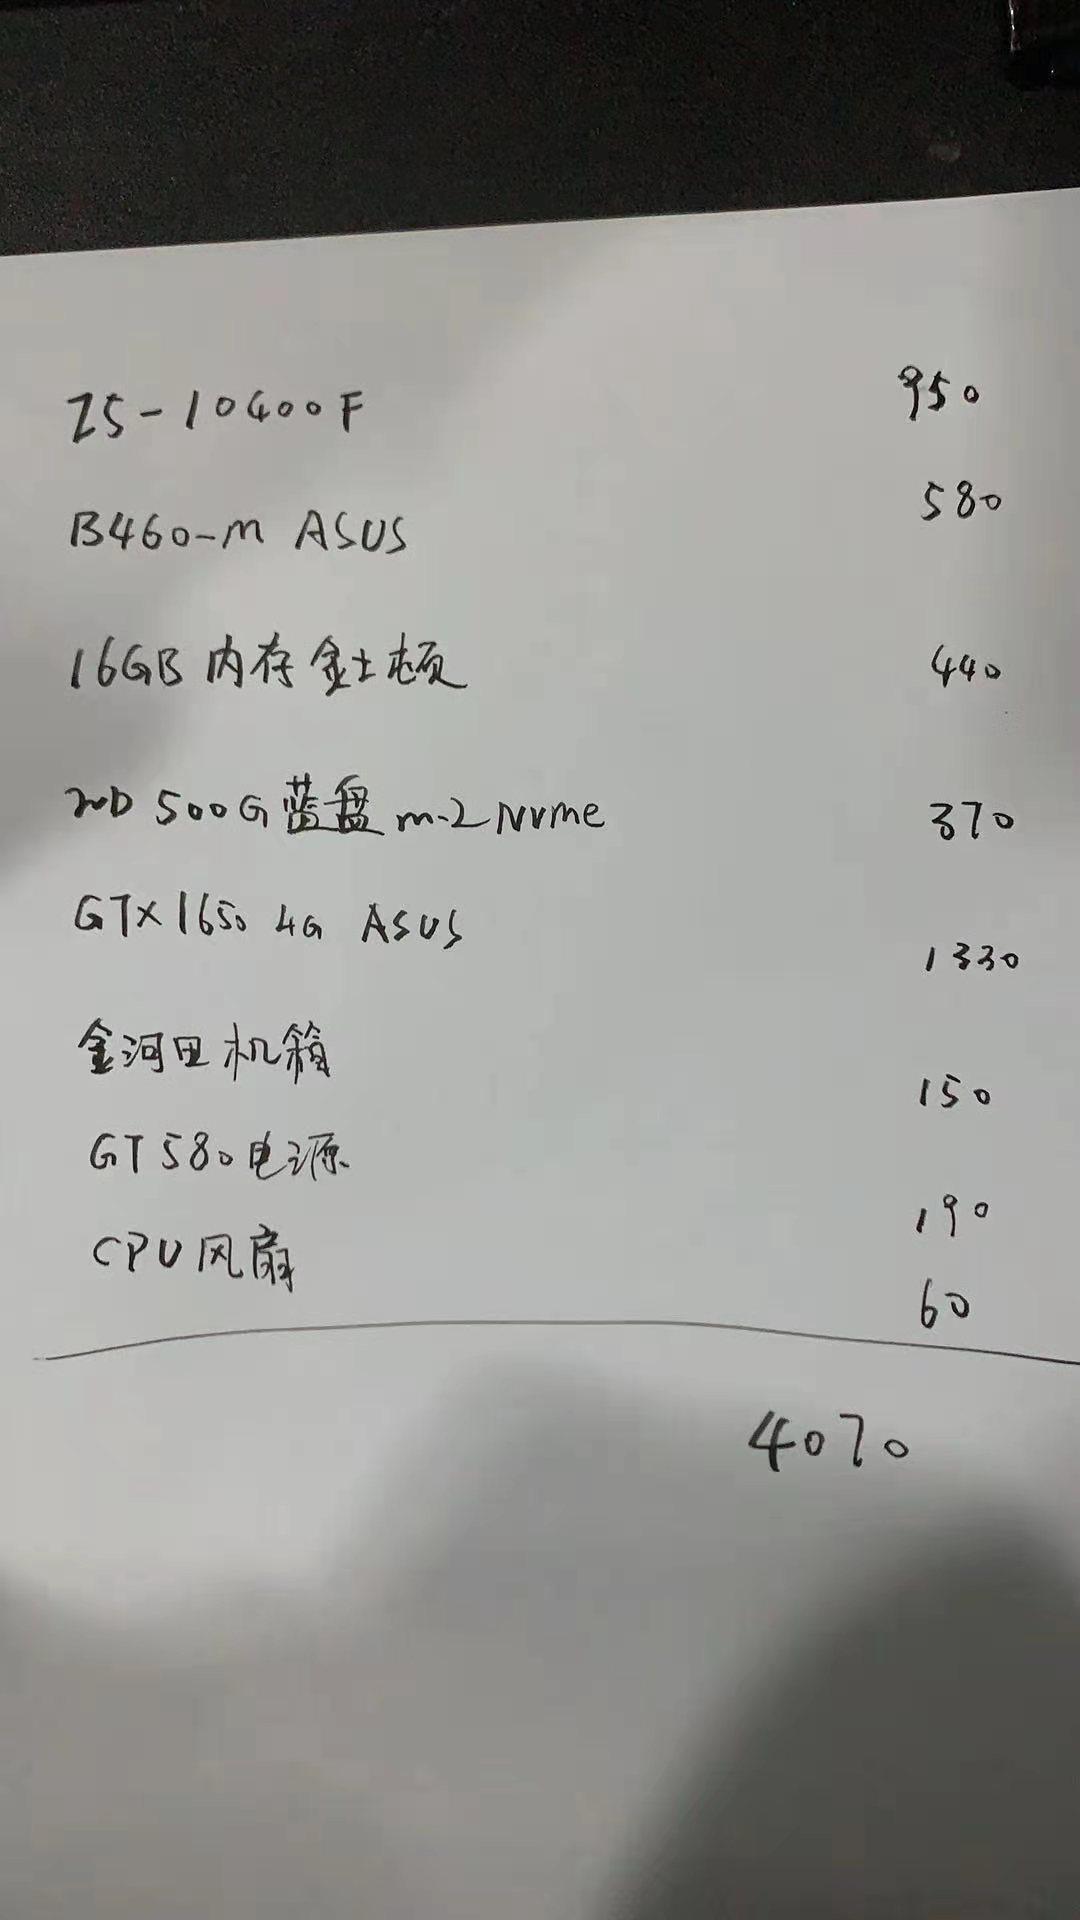 I5-10400F 950
B460-m ASUS 580
16GB 内存 金士顿 440
WD 500G 蓝盘 m.2 Nvme 370
GTX1650 4G ASUS 1330
金河田机箱 150
GT580电源 190
CPU风扇 60
4070